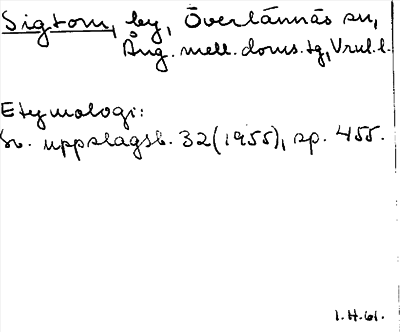 Sigtom, by, Överlännäs sn,
Ång. mell. doms. tg, Vrul.l.
Etymologi:
Sv. uppslagsb. 32 (1955), sp. 455.
I.H.61.